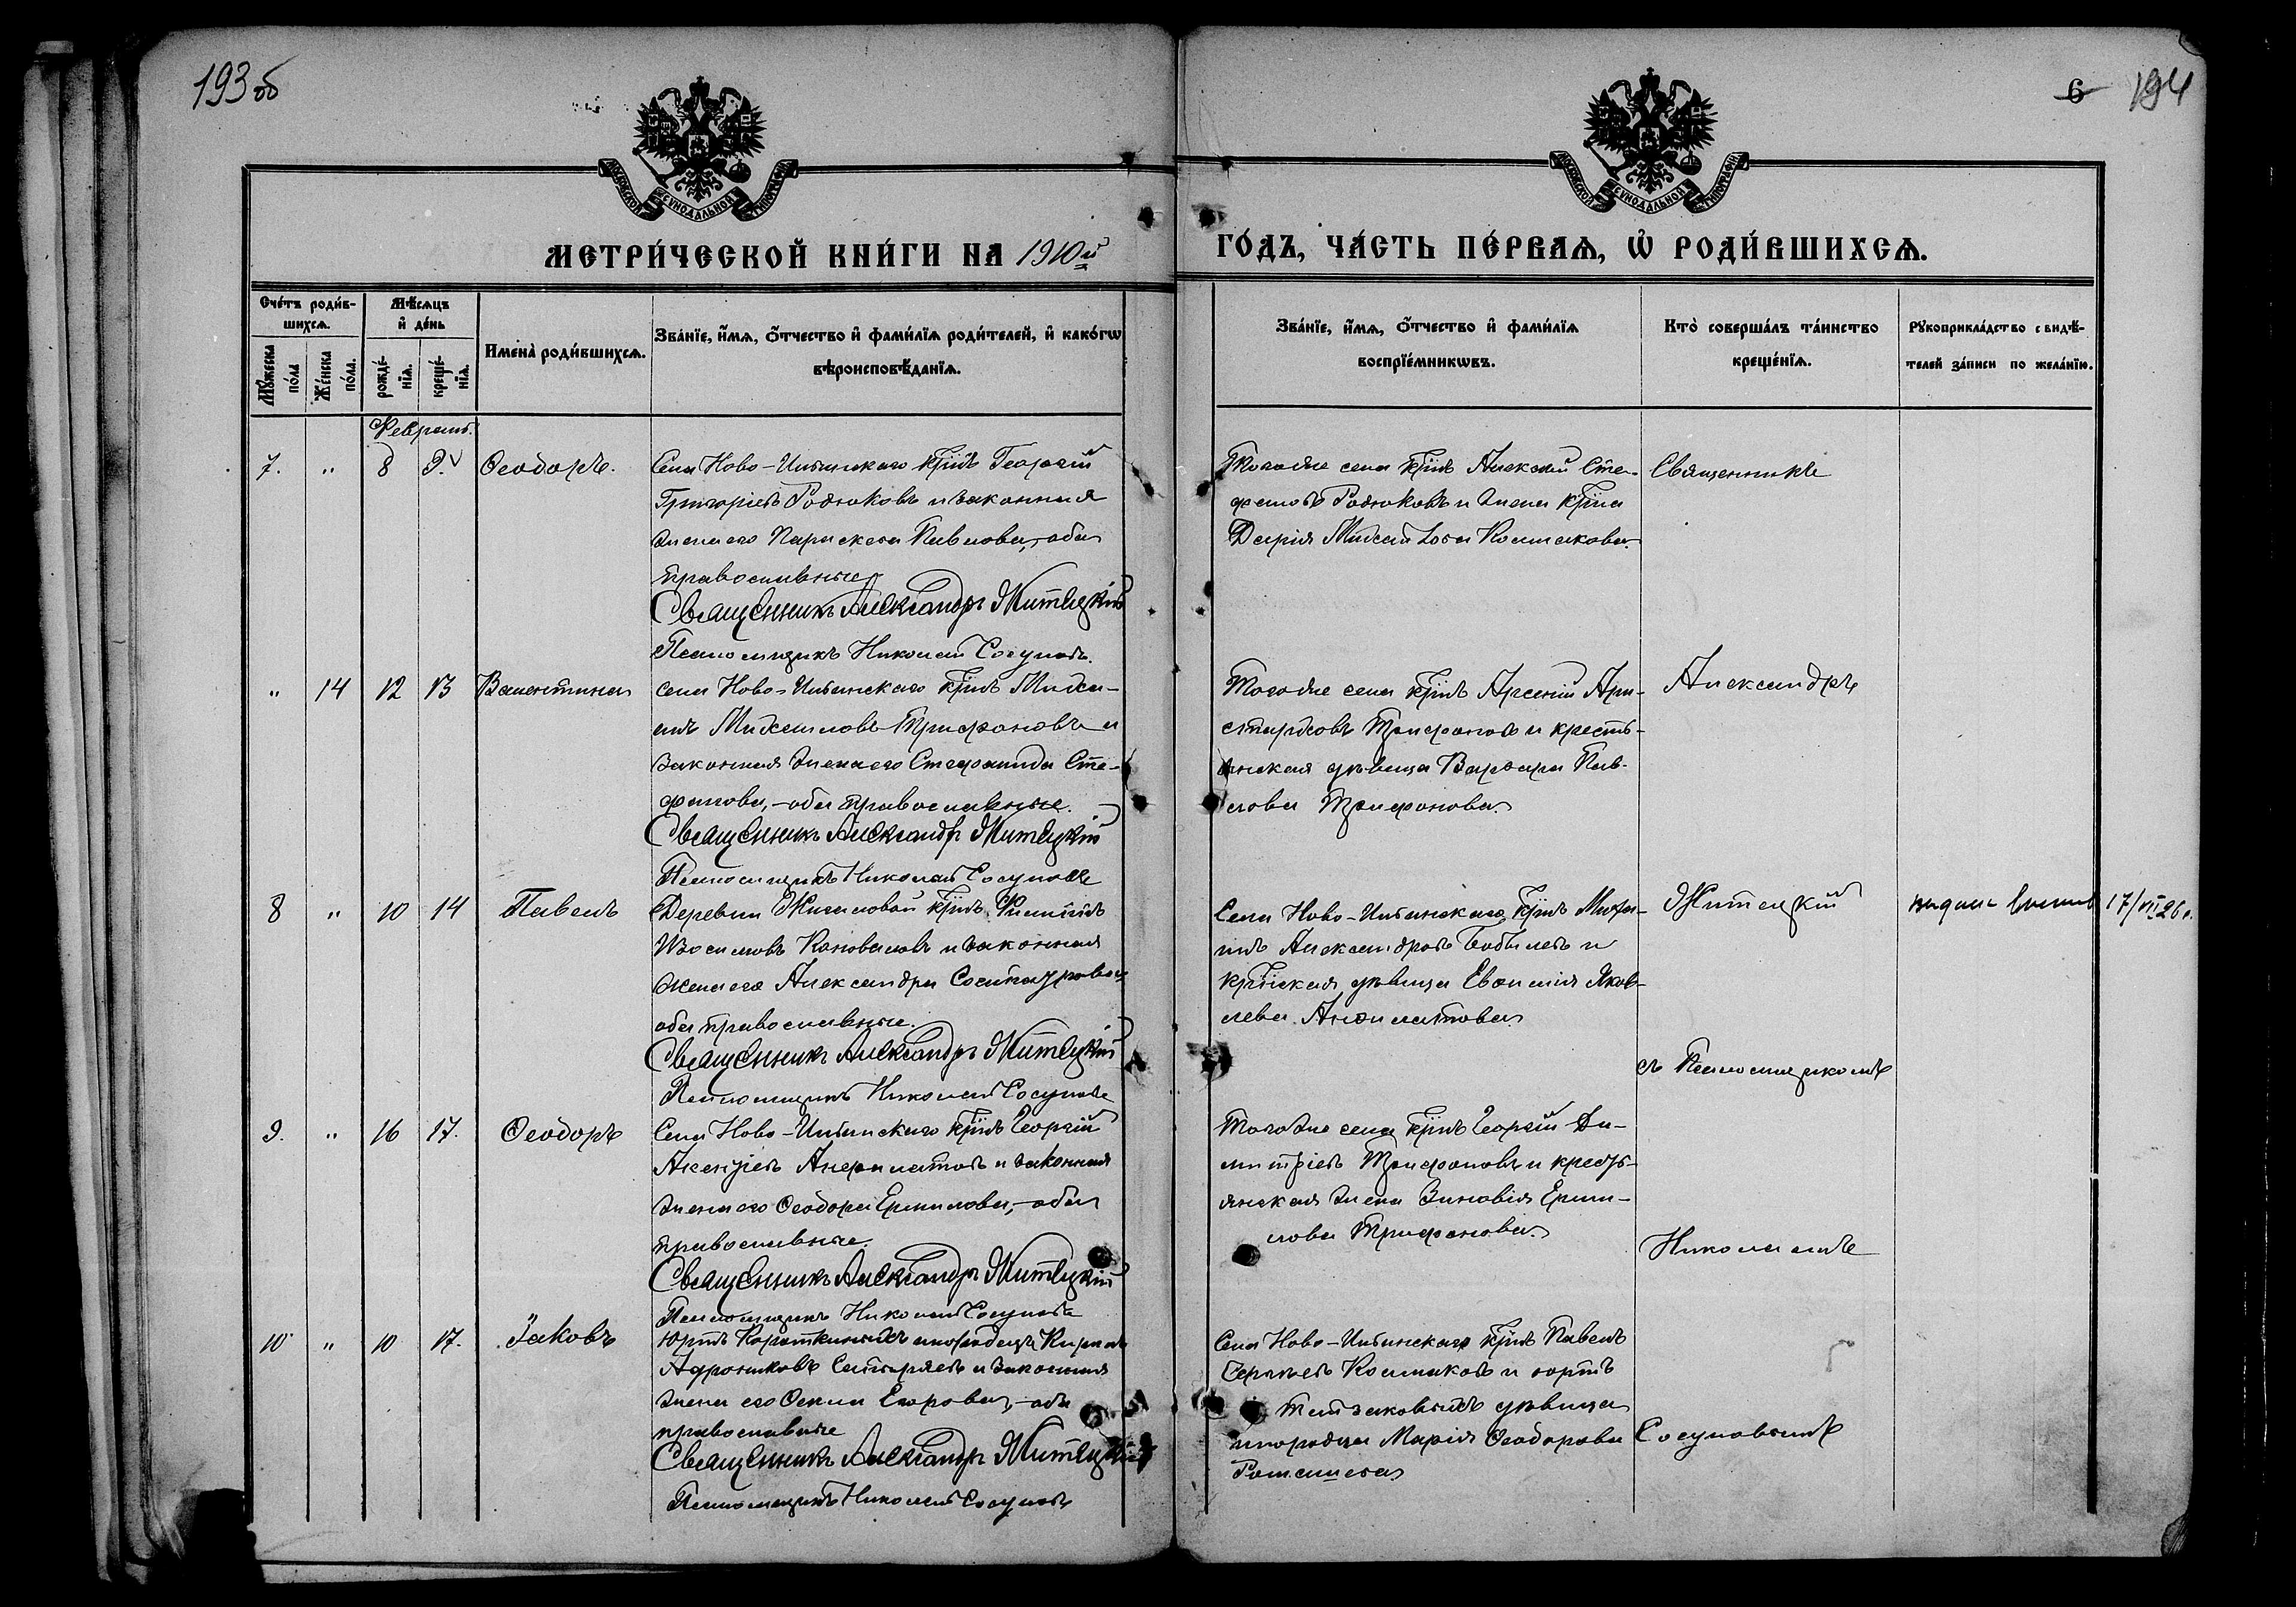 193 об
6 194
МОСКОВСКОЙ СѴНОДАЛЬНОЙ ТИПОГРАФІИ
МОСКОВСКОЙ СѴНОДАЛЬНОЙ ТИПОГРАФІИ
МЕТРИ́ЧЕСКОЙ КНИ́ГИ НА 1910й
ГО́ДЪ, ЧА́СТЬ ПЕ́РВАѦ, Ѡ҆ РОДИ́ВШИХСѦ.
Сче́тъ роди́в-
шихсѧ.
Мꙋ́жеска по́ла
Же́нска по́ла.
Мѣ́сѧцъ
и҆ де́нь
рожде́-нїѧ.
креще́-нїѧ.
Имена̀ роди́вшихсѧ.
Зва́нїе, и҆́мѧ, ѻ҆́тчество и҆ фами́лїѧ роди́телей, и҆ како́гѡ
вѣроисповѣ́данїѧ.
Зва́нїе, и҆́мѧ, ѻ҆́тчество и҆ фами́лїѧ
воспрїе́мникѡвъ.
Кто̀ соверша́лъ та́инство
креще́нїѧ.
Рꙋкоприкла́дство свидѣ́-
телей за́писи по жела́нїю.
Февраль.
7. " 8 9. Ѳеодоръ.
Села Ново-Шибинскаго кр̃нъ Георгій
Григоріевъ Родюковъ и законная
жена его Параскева Павлова, оба
православные
Священникъ Александръ Житецкій
Псаломщикъ Николай Сосуновъ.
Тогоже села кр̃нъ Алексѣй Сте-
фановъ Родюковъ и жена кр̃на
Дарія Михайлова Колмакова.
Священникъ
" 14 12 13 Валентина
села Ново-Шибинскаго кр̃нъ Миха-
илъ Михаиловъ Трифоновъ и
законная жена его Стефанида Сте-
фанова, - оба православные.
Священникъ Александръ Житецкій
Псаломщикъ Николай Сосуновъ
Тогоже села кр̃нъ Арсеній Ари-
старховъ Трифоновъ и кресть-
янская дѣвица Варвара Пав-
лова Трифонова.
Александръ
8 " 10 14 Павелъ
Деревни Жигаловой кр̃нъ Филиппъ
Изосимовъ Коноваловъ и законная
жена его Александра
оба православные.
Священникъ Александръ Житецкій
Псаломщикъ Николай Сосуновъ
Села Ново-Шибинскаго кр̃нъ Миха-
илъ Александровъ Бобылевъ и
кр̃нская дѣвица Яков-
лева Анфилатова.
Житецкій
17/VII 26 г.
съ Псаломщикомъ
9. " 16 17. Ѳеодоръ
Села Ново-Шибинскаго кр̃нъ Георгій
Анфилатовъ и законная
жена его Ѳеодора Ермилова, - оба
православные.
Священникъ Александръ Житецкій
Псаломщикъ Николай Сосуновъ
Тогоже села кр̃нъ Георгій Ди-
митріевъ Трифоновъ и кресть-
янская жена Зиновія Ерми-
лова Трифонова.
Николаемъ
10 " 10 17. Іаковъ
Юртъ инородецъ
и законная
жена его Егорова, - оба
православные
Священникъ Александръ Житецкій
Псаломщикъ Николай Сосуновъ
Села Ново-Шибинскаго кр̃нъ Павелъ
Колмаковъ и юртъ
дѣвица
инородца Марія Ѳеодорова
Сосуновымъ